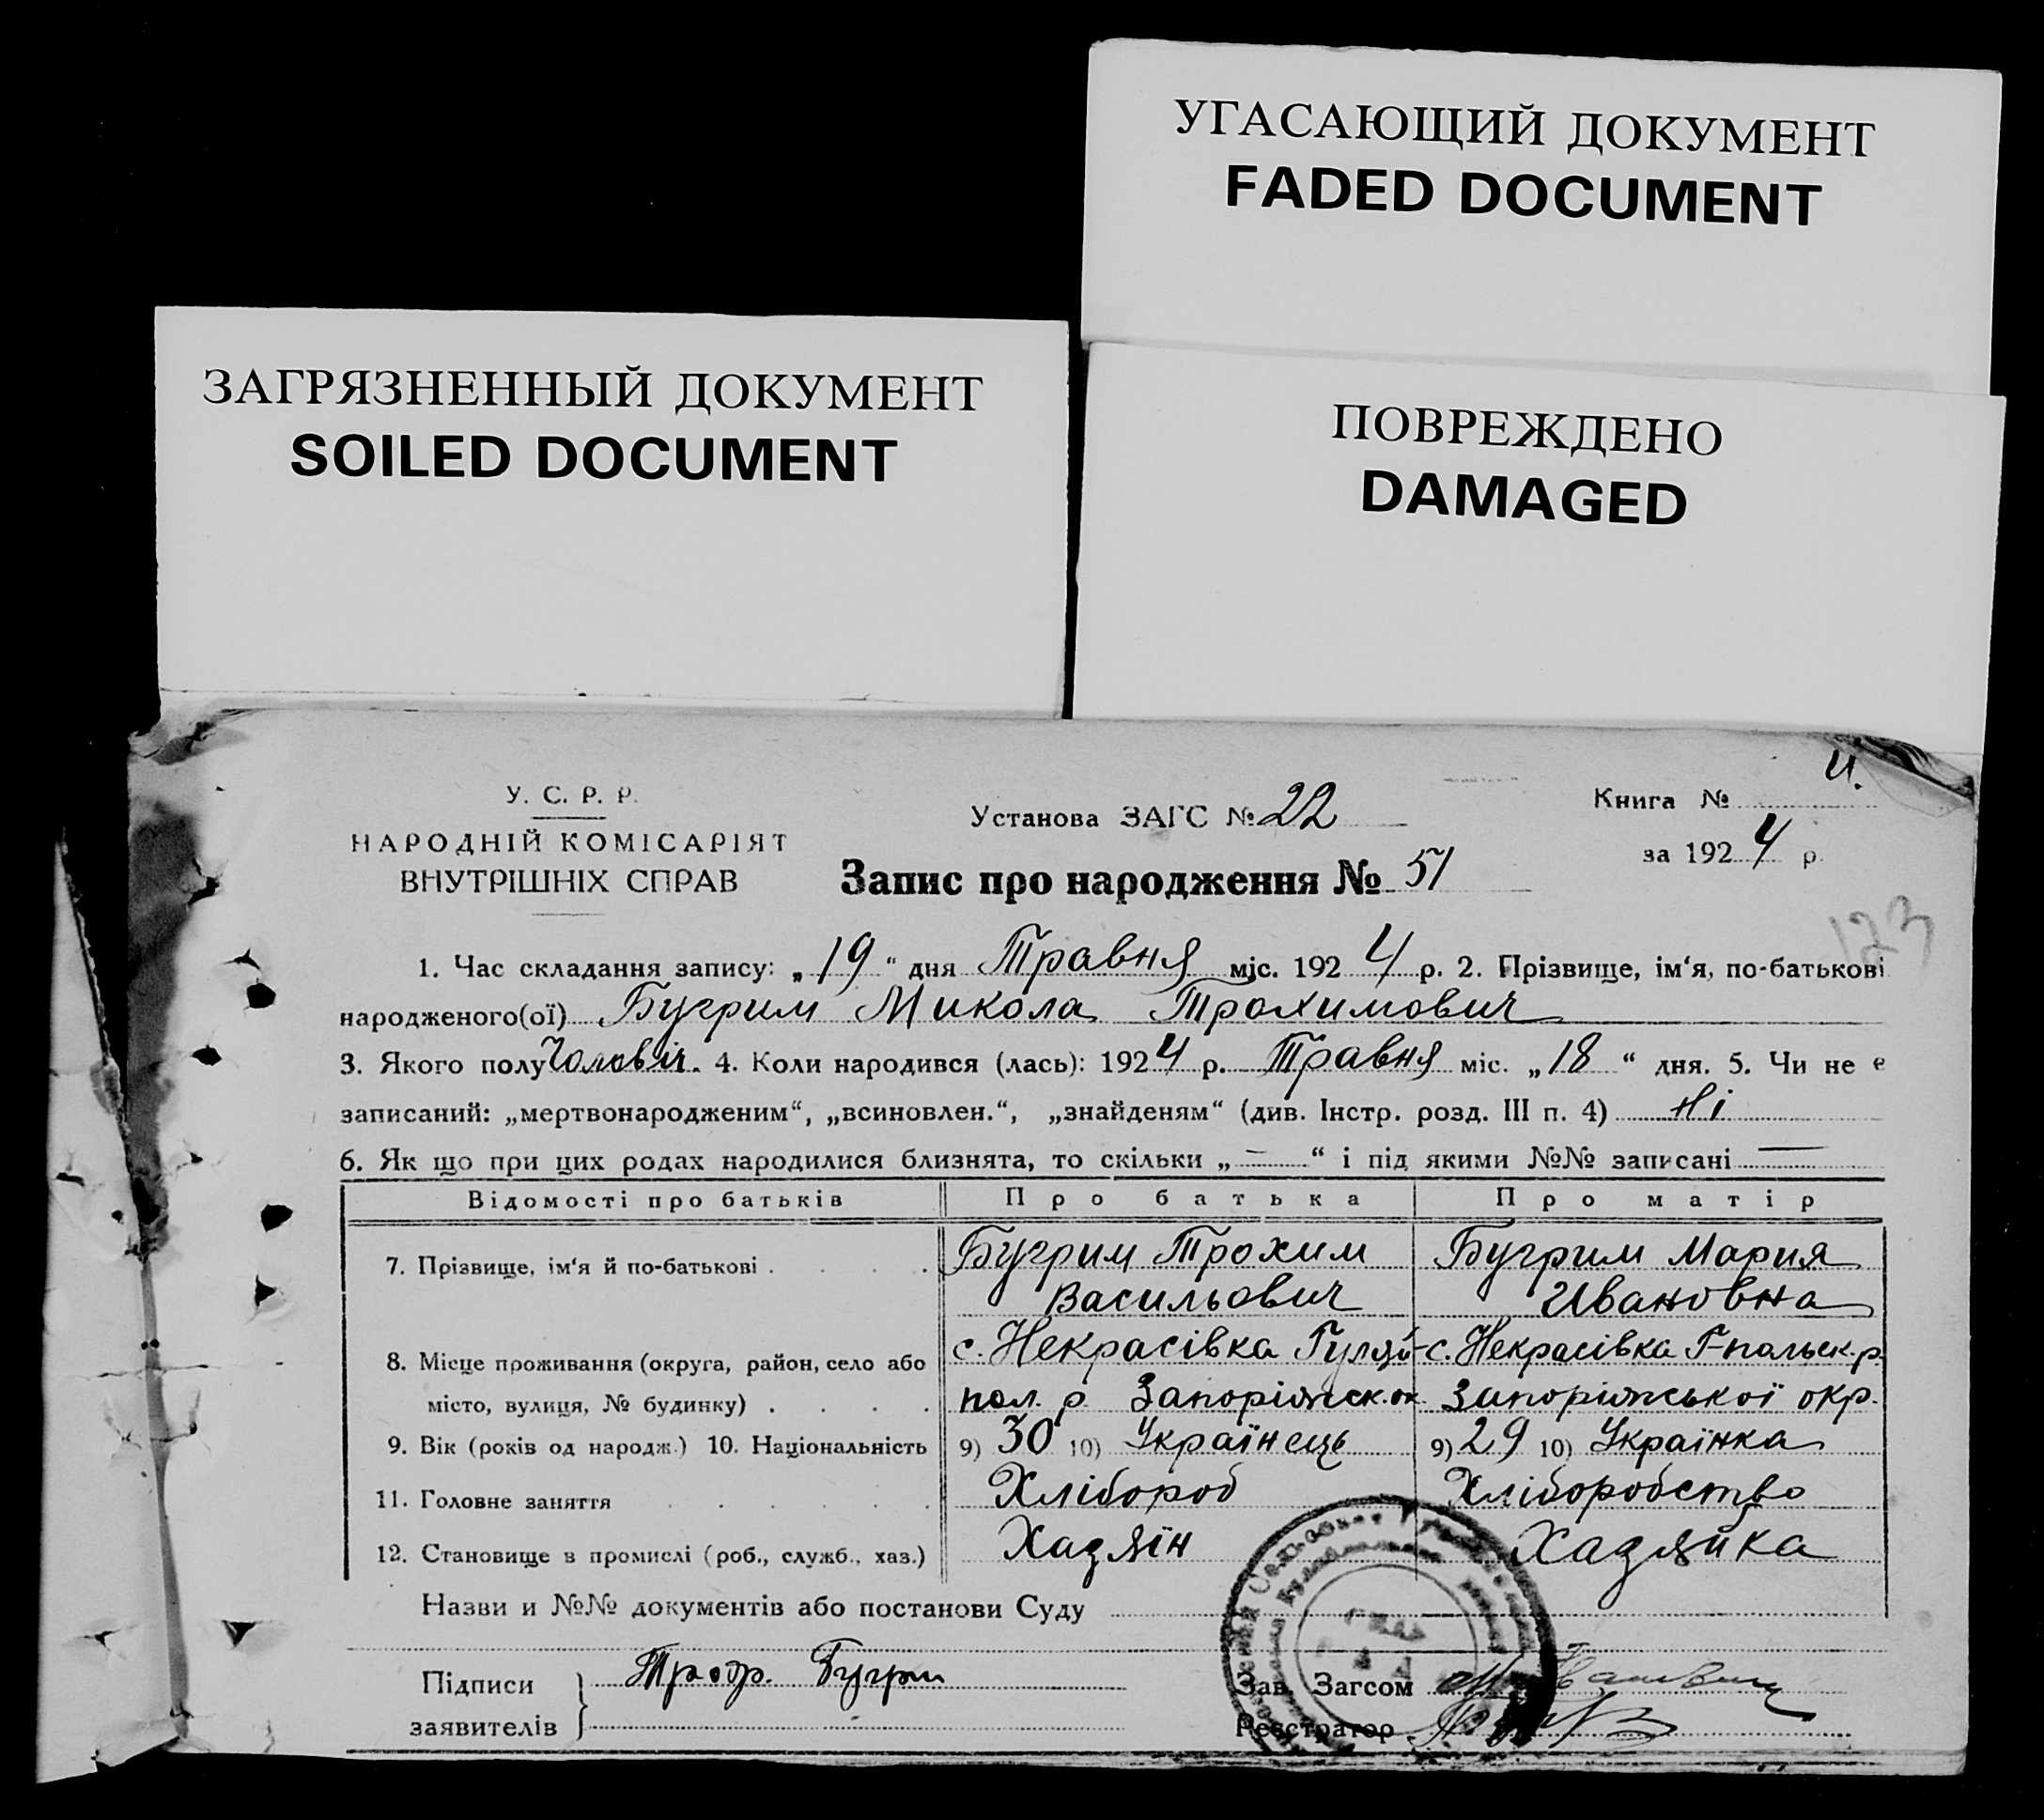 УГАСАЮЩИЙ ДОКУМЕНТ
FADED DOCUMENT
ЗАГРЯЗНЕННЫЙ ДОКУМЕНТ
SOILED DOCUMENT
ПОВРЕЖДЕНО
DAMAGED
У. С. Р. Р.
НАРОДНІЙ КОМІСАРІЯТ
ВНУТРІШНІХ СПРАВ
Установа ЗАГС № 22
Запис про народження № 51
Книга №
за 1924 р.
123
1. Час складання запису: „19“ дня Травня міс. 1924 р. 2. Прізвище, ім‘я, по-батькові
народженого(ої) Бугрим Микола Трохимович
3. Якого полу Чоловіч. 4. Коли народився (лась): 1924 р. Травня міс. „18“ дня. 5. Чи не є
записаний: „мертвонародженим“, „всиновлен.“, „знайденям“ (див. Інстр. розд. III п. 4) Ні
6. Як що при цих родах народилися близнята, то скільки „—“ і під якими №№ записані —
Відомості про батьків Про батька Про матір
7. Прізвище, ім‘я й по-батькові . . . . Бугрим Трохим Бугрим Мария
Васильович Ивановна
8. Місце проживання (округа, район, село або с. Некрасівка Гуляй- с. Некрасівка Г-польск. р.
місто, вулиця, № будинку) . . . . пол. р. Запоріжск. ок. Запоріжської окр.
9. Вік (років од народж.) 10. Національність 9) 30 10) Українець 9) 29 10) Українка
11. Головне заняття . . . . . . Хлібороб Хліборобство
12. Становище в промислі (роб., служб., хаз.) Хадяїн Хадяйка
Назви и №№ документів або постанови Суду
Підписи Троф. Бугрим Зав. Загсом
заявителів Реєстратор